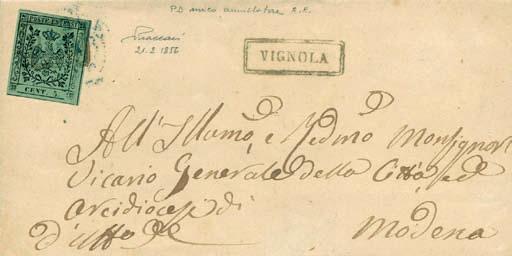 PD unico annullatore R.R.
21.2.1856
POSTE ESTENSI
CENT. 5.
VIGNOLA
All' Illmo, e Redmo Monsignor
Vicario Generale della Città, ed
Arcidiocesi di
Modena